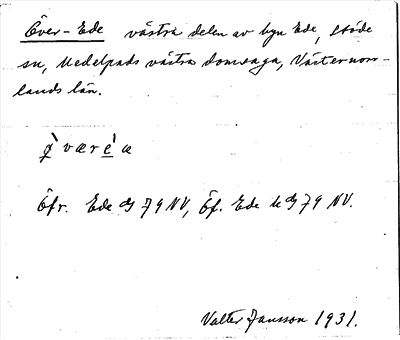 Över-Ede västra delen av byn Ede, Stöde
sn, Medelpads västra domsaga, Västernorr-
lands län.
Öfr. Ede GJ 79 NV, Öf. Ede k GJ 79 NV.
Valter Jansson 1931.